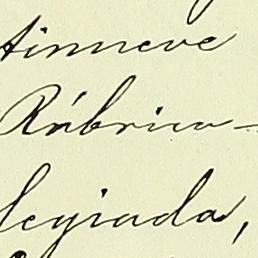 tinueve
Rúbrica-
legiada,